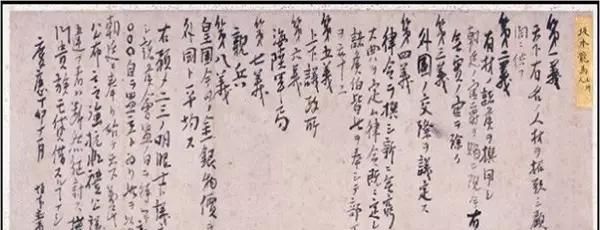 坂本龍馬
第一義
天下有名ノ人材ヲ招致シ顧
問ニ供フ
第二義
有材ノ諸侯ヲ撰用シ
朝廷ノ官爵ヲ賜ヒ現今有
名無実ノ官ヲ除ク
第三義
外国ノ交際ヲ議定ス
第四義
律令ヲ撰シ新ニ無窮ノ
大典ヲ定ム律令既ニ定レ
諸侯伯皆此ヲ奉シテ部下
第五義
上下議政所
第六義
海陸軍局
第七義
親兵
第八義
皇国今日ノ金銀物価ヲ
外国ト平均ス
右預メ二三ノ明眼士ト議
シ諸侯会盟ノ日ヲ待ツテ
○○○自ラ盟主ト為リ此ヲ以
朝廷ニ奉リ始テ天下万
公布云云強抗非礼公議
違フ者ハ断然征討ス権
門貴族モ貸借スルナシ
慶応丁卯十一月 坂本直